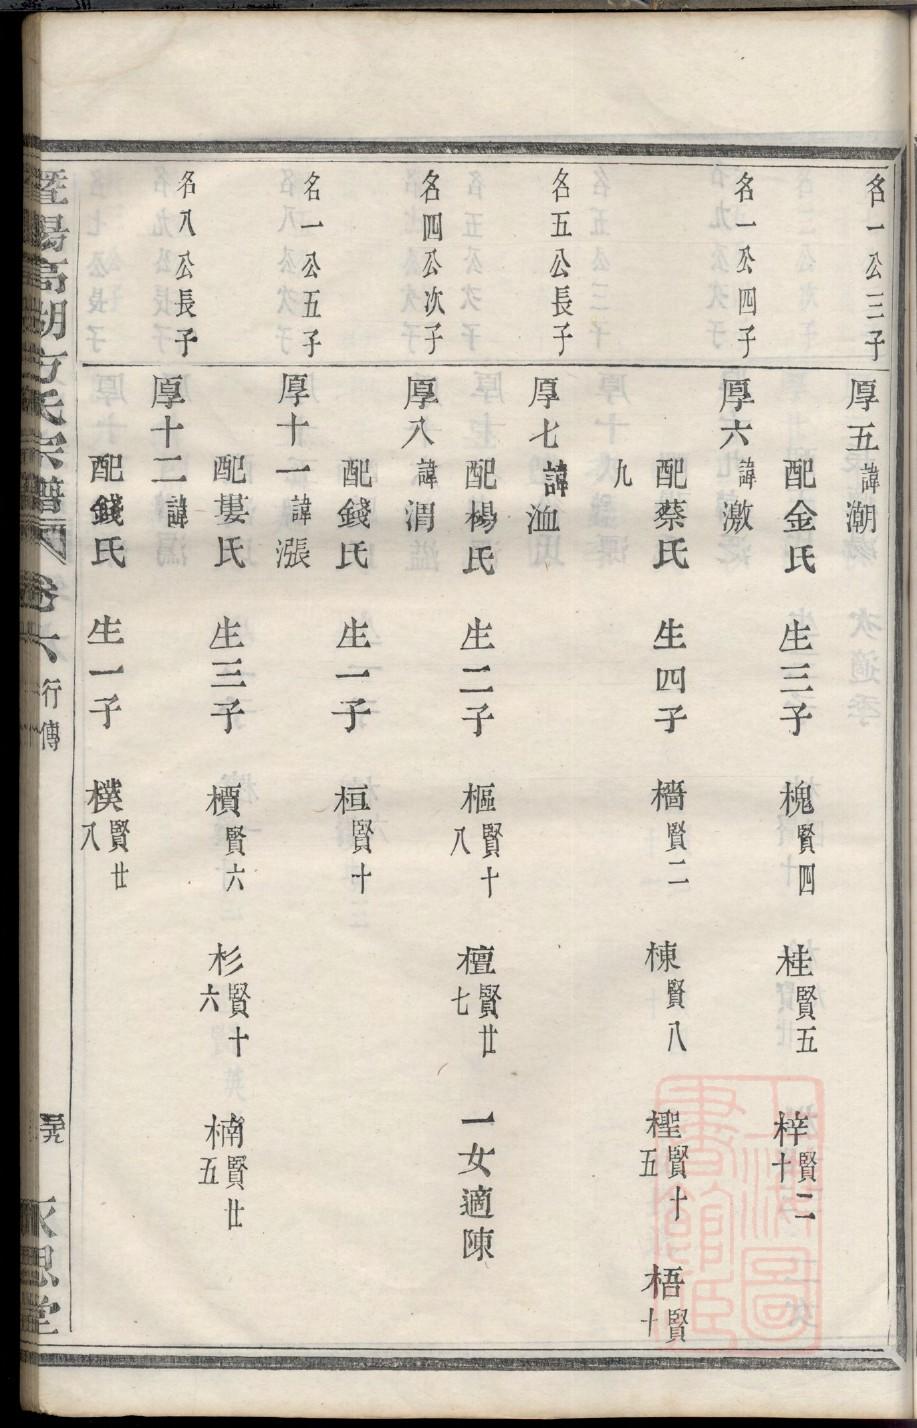 名一公三子
厚五諱潮
配金氏 生三子 槐賢四 桂賢五 梓賢二十
名一公四子
厚六諱激
配蔡氏 生四子 櫅賢二 棟賢八 檉賢十五 梧賢十
九
名五公長子
厚七諱洫
配楊氏 生二子 樞賢十八 檀賢廿七 一女適陳
名四公次子
厚八諱渭
配錢氏 生一子 桓賢十
名一公五子
厚十一諱漲
配婁氏 生三子 檟賢六 杉賢十六 楠賢廿五
名八公長子
厚十二諱
配錢氏 生一子 樸賢廿八
暨陽高湖方氏宗譜 卷六 行傳